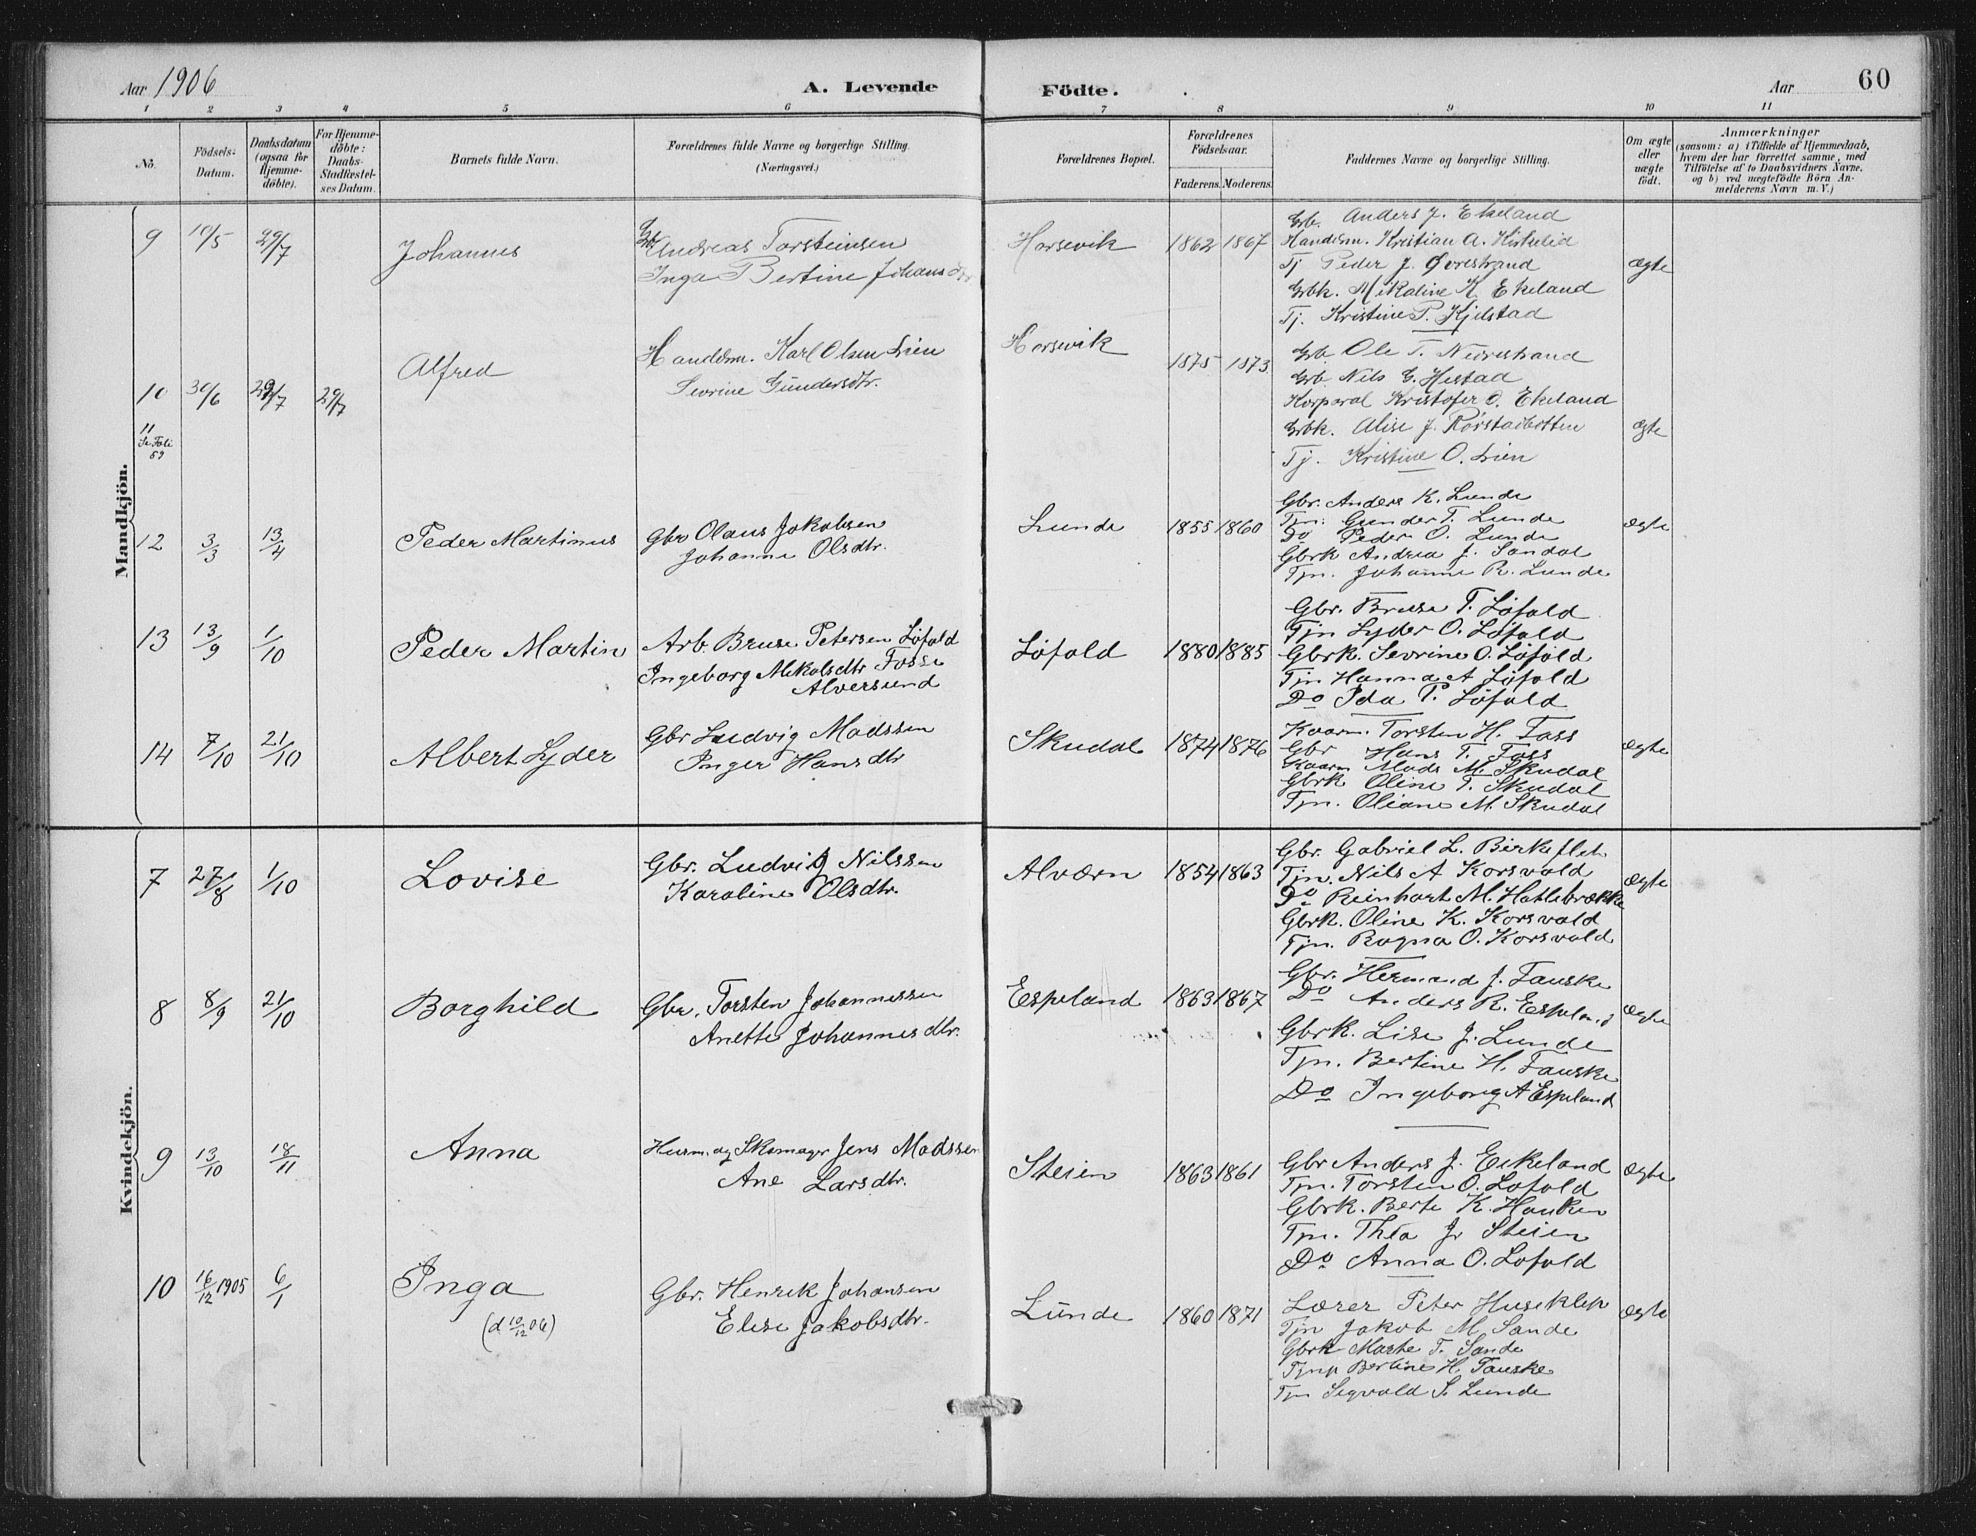 Aar 1906
A. Levende
Födte.
Aar
60
1 2 3 4 5 6 7 8 9 10 11
No.
Födsels-
Datum.
Daabsdatum
(ogsaa for
Hjemme-
döbte).
For Hjemme-
döbte:
Daabs-
Stadfæstel-
ses Datum.
Barnets fulde Navn.
Forældrenes fulde Navne og borgerlige Stilling.
(Næringsvei.)
Forældrenes Bopæl.
Forældrenes
Födselsaar.
Faderens. Moderens.
Faddernes Navne og borgerlige Stilling.
Om ægte
eller
uægte
födt.
Anmærkninger
(saasom: a) i Tilfælde af Hjemmedaab,
hvem der har forrettet samme, med
Tilföielse af to Daabsvidners Navne,
og b) ved uægtefödte Börn An-
melderens Navn m. V.)
Mandkjön.
9 10/5 29/7 Johannes
Gbr. Andreas Torsteinsen
Inga Bertine Johansdtr
Horsevik 1862 1867
Grb. Anders J. Ekeland
Handdsm. Kristian A. Hiskelid
Tj Peder J. Øvrestrand
Grbk. Mikaline K. Ekeland
Tj. Kristine P. Kjilstad
ægte
10 30/6 29/7 29/7 Alfred
Handdsm. Karl Olsen Lien
Sevrine Gundersdtr.
Horsevik 1875 1873
Grb Ole T. Nedrestrand
Grb. Nils G. Hestad
Korporal Kristofer O. Ekeland
Grbk. Alise J. Rørstadbotten
Tj. Kristine O. Lien
ægte
11
Se Foli
59
12 3/3 13/4 Peder Martinus
Gbr Olaus Jakobsen
Johanne Olsdtr.
Lunde 1855 1860
Gbr. Anders K. Lunde
Tjn: Gunder T. Lunde
Do Peder O. Lunde
Gbrk Andrea J. Sandal
Tjn. Johanne R. Lunde
ægte
13 13/9 1/10 Peder Martin
Arb Bruse Petersen Løfald
Ingeborg Mikalsdtr Fosse
Alversund
Løfald 1880 1885
Gbr. Bruse T. Løfald
Tjn Lyder O. Løfald
Gbrk. Sevrine O. Løfald
Tjn Hanna A Løfald
Do Ida P. Løfald
14 7/10 21/10 Albert Lyder
Gbr Ludvig Madssen
Inger Hansdtr
Skudal 1874 1876
Kaarm. Torsten H. Fass
Gbr Hans T. Fass
Kaarm Mads M. Skudal
Gbrk Oline T. Skudal
Tjn. Oliane M. Skudal
ægte
Kvindekjön.
7 27/8 1/10 Lovise
Gbr. Ludvig Nilssen
Karoline Olsdtr.
Alværn 1854 1863
Gbr. Gabriel L. Birkeflet
Tjn. Nils A Korsvold
Do Reinhart M. Hatlebrække
Gbrk. Oline K. Korsvold
Tjn. Ragna O. Korsvold
ægte
8 8/9 21/10 Borghild
Gbr. Torsten Johannessen
Anette Johannesdtr.
Espeland 1863 1867
Gbr. Hermand J. Fauske
Do Anders R. Espeland
Gbrk. Lise J. Lunde
Tjn. Bertine H. Fauske
Do Ingeborg A Espeland
ægte
9 13/10 18/11 Anna
Husm. og Skomager Jens Madssen
Ane Larsdtr.
Steien 1863 1861
Gbr Anders J. Eikeland
Tjn. Torsten O. Lofald
Gbrk. Berte K. Hauken
Tjn. Thea J. Steien
Do Anna O. Lofald
ægte
10 16/12 1905 6/1 Inga
(d 10/12 06)
Gbr. Henrik Johansen
Elise Jakobsdtr.
Lunde 1860 1871
Lærer Peter Huseklep
Tjn Jakob M. Sande
Gbrk Marte T. Sande
Tjnp Bertine H. Fauske
Tjn Segvald S. Lunde
ægte